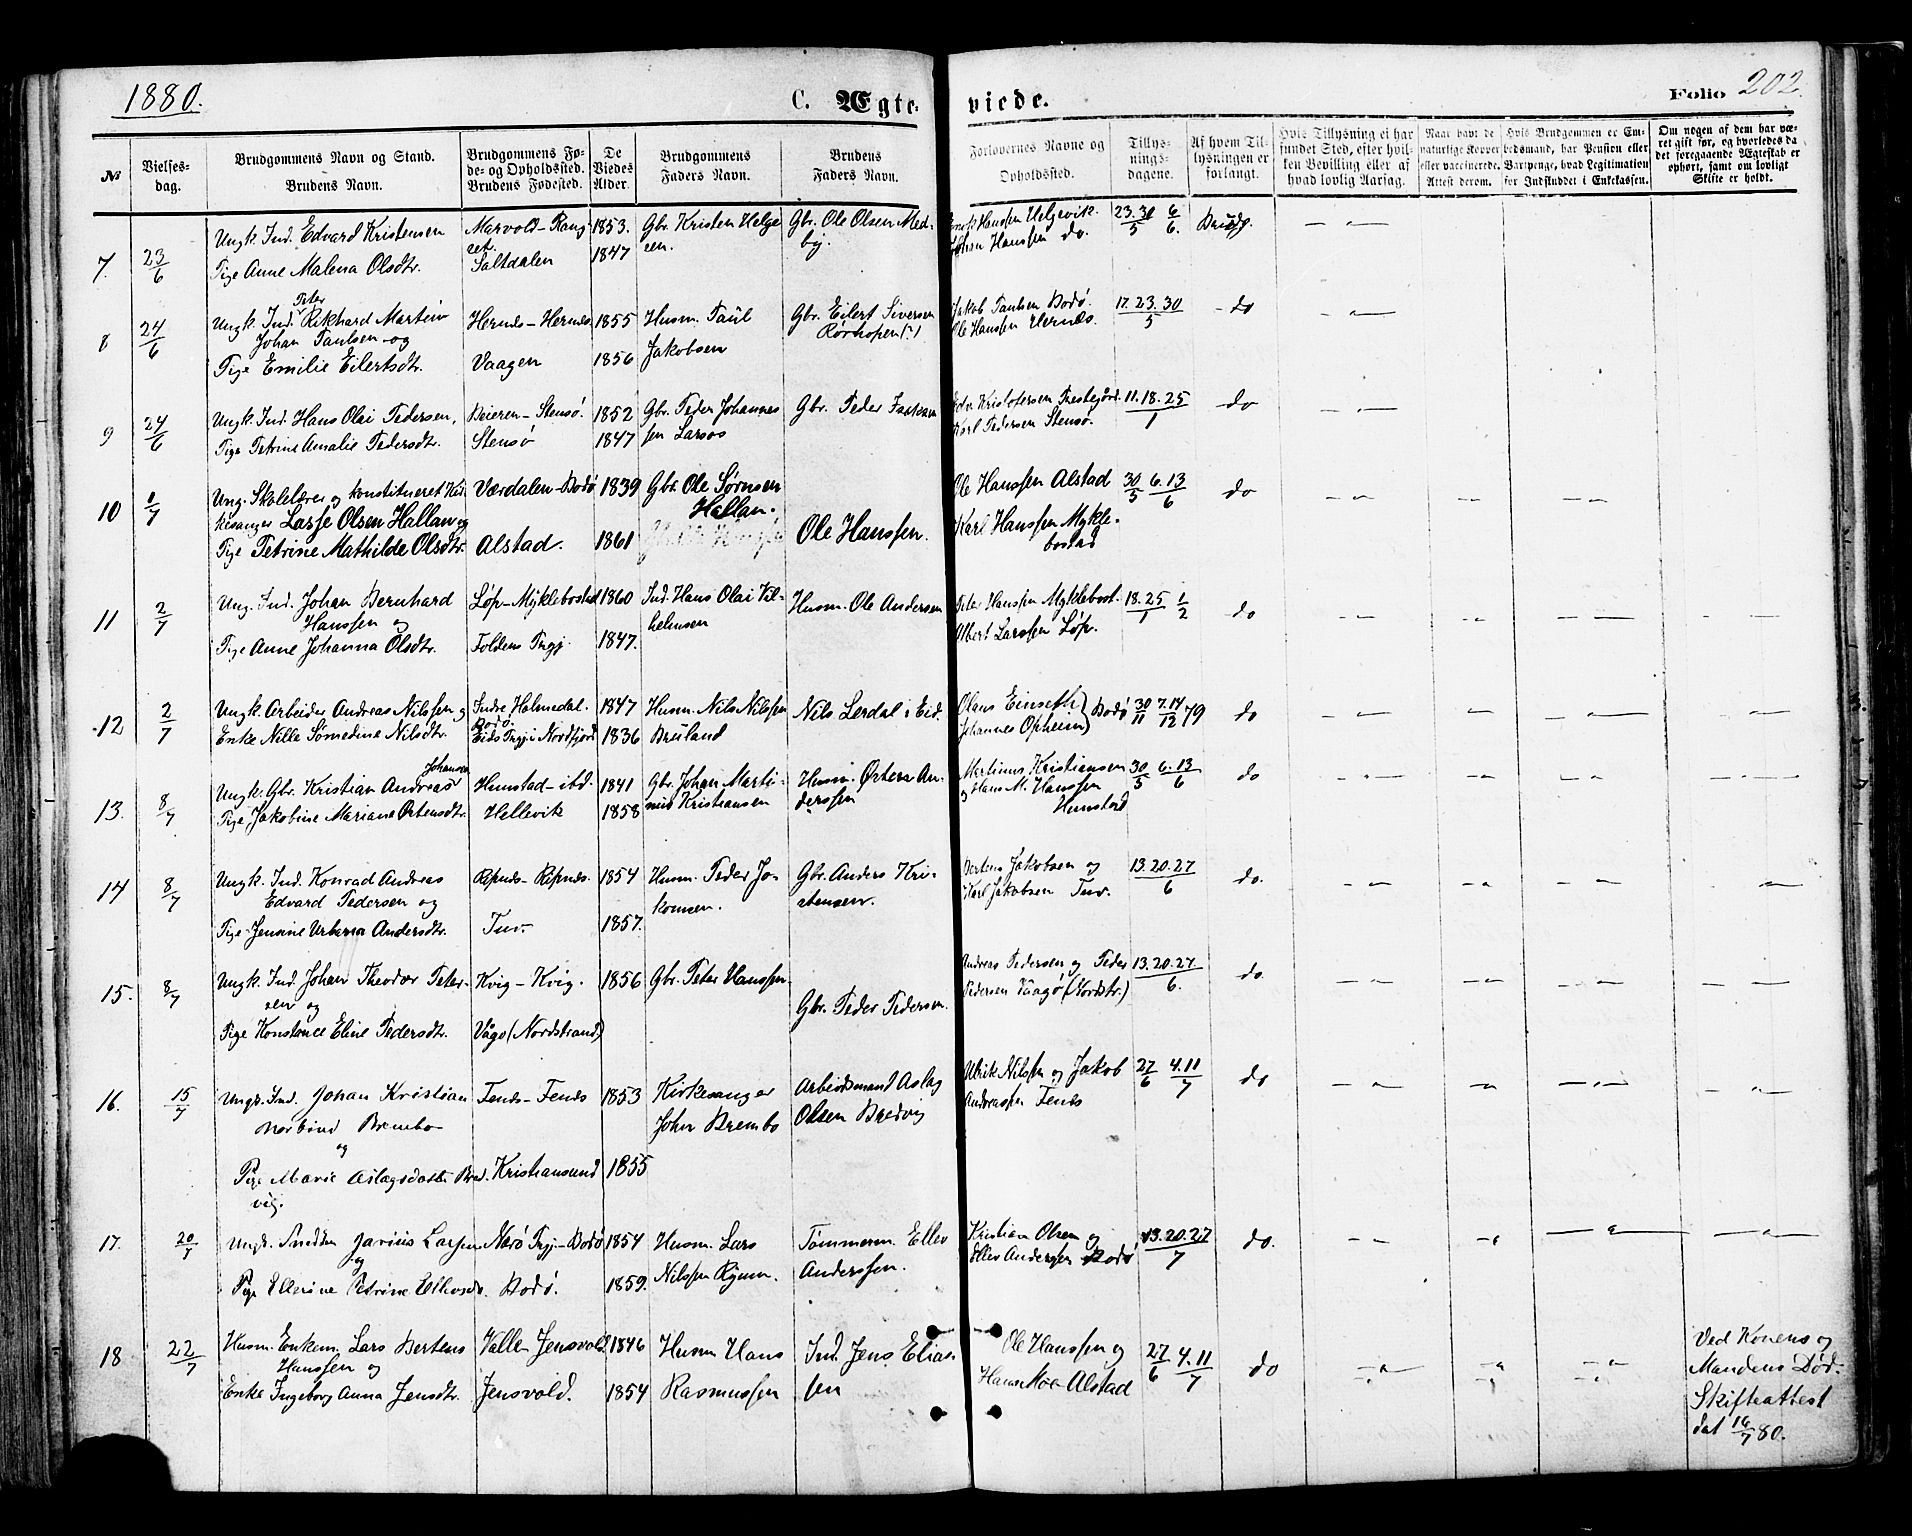 1880.
C. Ægte-
viede.
Folio 202.
№
Vielses-
dag.
Brudgommens Navn og Stand.
Brudens Navn.
Brudgommens Fø-
de- og Opholdssted.
Brudens Fødested.
De
Viedes
Alder.
Brudgommens
Faders Navn.
Brudens
Faders Navn.
Forlovernes Navne og
Opholdssted.
Tillys-
nings-
dagene.
Af hvem Til-
lysningen er
forlangt.
Hvis Tillysning ei har
fundet Sted, efter hvil-
ken Bevilling eller af
hvad lovlig Aarsag.
Naar havt de
naturlige Kopper
eller vaccinerede.
Attest derom.
Hvis Brudgommen er Em-
bedsmand, har Pension eller
Vartpenge, hvad Legitimation
for Indskuddet i Enkekassen.
Om nogen af dem har væ-
ret gift før, og hvorledes da
det foregaaende Ægteskab er
ophørt, samt om lovligt
Skifte er holdt.
7. 23/6 Ungk. Ind. Edvard Kristensen
Pige Anne Malena Olsdtr.
Saltdalen
1853.
1847
Gbr. Kristen Helge
sen.
Gbr. Ole Olsen Med-
by.
Hanssen Helgevik.
Hanssen do.
23. 30/5 6/6. Brudg. — „ —
8 24/6 Ungk. Ind. Peter Rikhard Martin
Johan Paulsen og
Pige Emilie Eilertsdtr.
Hernes - Hernes
Vaagen
1855
1856
Husm. Paul
Jakobsen
Gbr. Eilert Sivertsen
Rørhopen (?)
Jakob Paulsen Bodø.
Ole Hanssen Hernes.
17. 23. 30/5 do — „ —
9 24/6 Ungk. Ind. Hans Olai Pedersen,
Pige Petrine Amalie Pedersdtr.
Beieren - Stensø.
Stensø
1852
1847
Gbr. Peder Johannes
sen Larsos
Gbr. Peder Isaksen
Kristofersen
Karl Pedersen Stensø.
11. 18. 25/1 do — „ —
10 1/7 Ung. Skolelærer og konstitueret Kir
kesanger Lasse Olsen Hallan og
Pige Petrine Mathilde Olsdtr.
Værdalen - Bodø
Alstad.
1839
1861
Gbr. Ole Sørnsen
Hallan.
Ole Hanssen.
Ole Hanssen Alstad
Karl Hanssen Mykle-
bostad
30/5 6. 13/6 do
11 2/7 Ung. Ind. Johan Bernhard
Hanssen og
Pige Anne Johanna Olsdtr.
Løp - Myklebostad
Foldens Prgj.
1860
1847.
Ind. Hans Olai Vil-
helmsen
Husm. Ole Andersen
Peter Hanssen Myklebost.
Albert Larssen Løp.
18. 25/1 1/2 do
12 2/7 Ungk. Arbeider Andreas Nilssen og
Enke Nille Nilsdtr.
Indre Holmedal -
Bodø.
Eids Prgj. i Nordfjord
1847
1836
Husm. Nils Nilssen
Bruland
Nils Lerdal i Eid.
Olaus Einseth
Johannes Opheim) Bodø
30/11 7. 14/12 79 do
13. 8/7 Ungk. Gbr. Kristian Andreas Johansen
Pige Jakobine Mariane Ørtensdtr.
Hunstad - ibd.
Hellevik
1841
1858
Gbr. Johan Marti-
nus Kristiansen
Husm. Ørten An-
derssen
Martinus Kristiansen
og Hans M. Hanssen
Hunstad
30/5 6. 13/6 do
14 8/7 Ungk. Ind. Konrad Andreas
Edvard Pedersen og
Pige Jensine Andersdtr.
Ripnes - Ripnes.
Tuv.
1854
1857.
Husm. Peder Jo-
komsen.
Gbr. Anders Kri-
stensen.
Jakobsen og
Karl Jakobsen Tuv.
13. 20. 27/6 do.
15. 8/7 Ungk. Ind. Johan Theodor Peter-
sen og
Pige Konstance Eline Pedersdtr.
Kvig - Kvig.
Vågø (Nordstrand)
1856
Gbr. Peter Hanssen.
Gbr. Peder Pedersen.
Andreas Pedersen og Peder
Pedersen Vaagø (Nordstr.)
13. 20. 27/6. do
16. 15/7 Ungk. Ind. Johan Kristian
Norbind Brembo
og
Pige Marie Aslagsdatter Bred-
vig.
Fenes - Fenes
Kristiansund
1853
1855
Kirkesanger
John Brembo
Arbeidsmand Aslag
Olsen Bredvig
Ulrik Nilssen og Jakob
Andreassen Fenes
27/6 4. 11/7 do
17. 20/7 Ungk. Smedsm. Larssen
og
Pige Ellerine Petrine Ellevsdtr.
Nærø Prgj. - Bodø
Bodø.
1854
1859.
Husm. Lars
Nilssen
Tømmerm. Ellev
Anderssen.
Kristian Olsen og
Ellev Anderssen Bodø
13. 20. 27/7 do.
18 22/7 Husm. Enkem. Lars Bertens
Hanssen og
Enke Ingeborg Anna Jensdtr.
Valle - Jensvold
Jensvold.
1846
1854
Husm Hans
Rasmussen
Ind. Jens Elias-
sen
Ole Hanssen og
Hans Moe Alstad
27/6 4. 11/7 do
Ved Konens og
Mandens Død.
Skifteattest
dat 16/7 80.